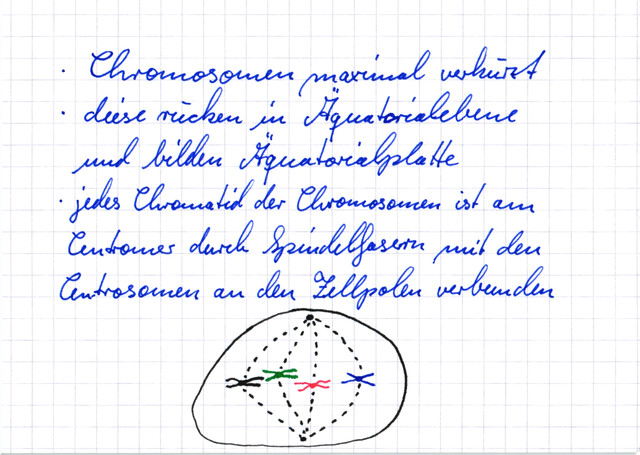 · Chromosomen maximal verkürzt
· diese rücken in Äquatorialebene
und bilden Äquatorialplatte
· jedes Chromatid der Chromosomen ist am
Centromer durch Spindelfasern mit den
Centrosomen an den Zellpolen verbunden